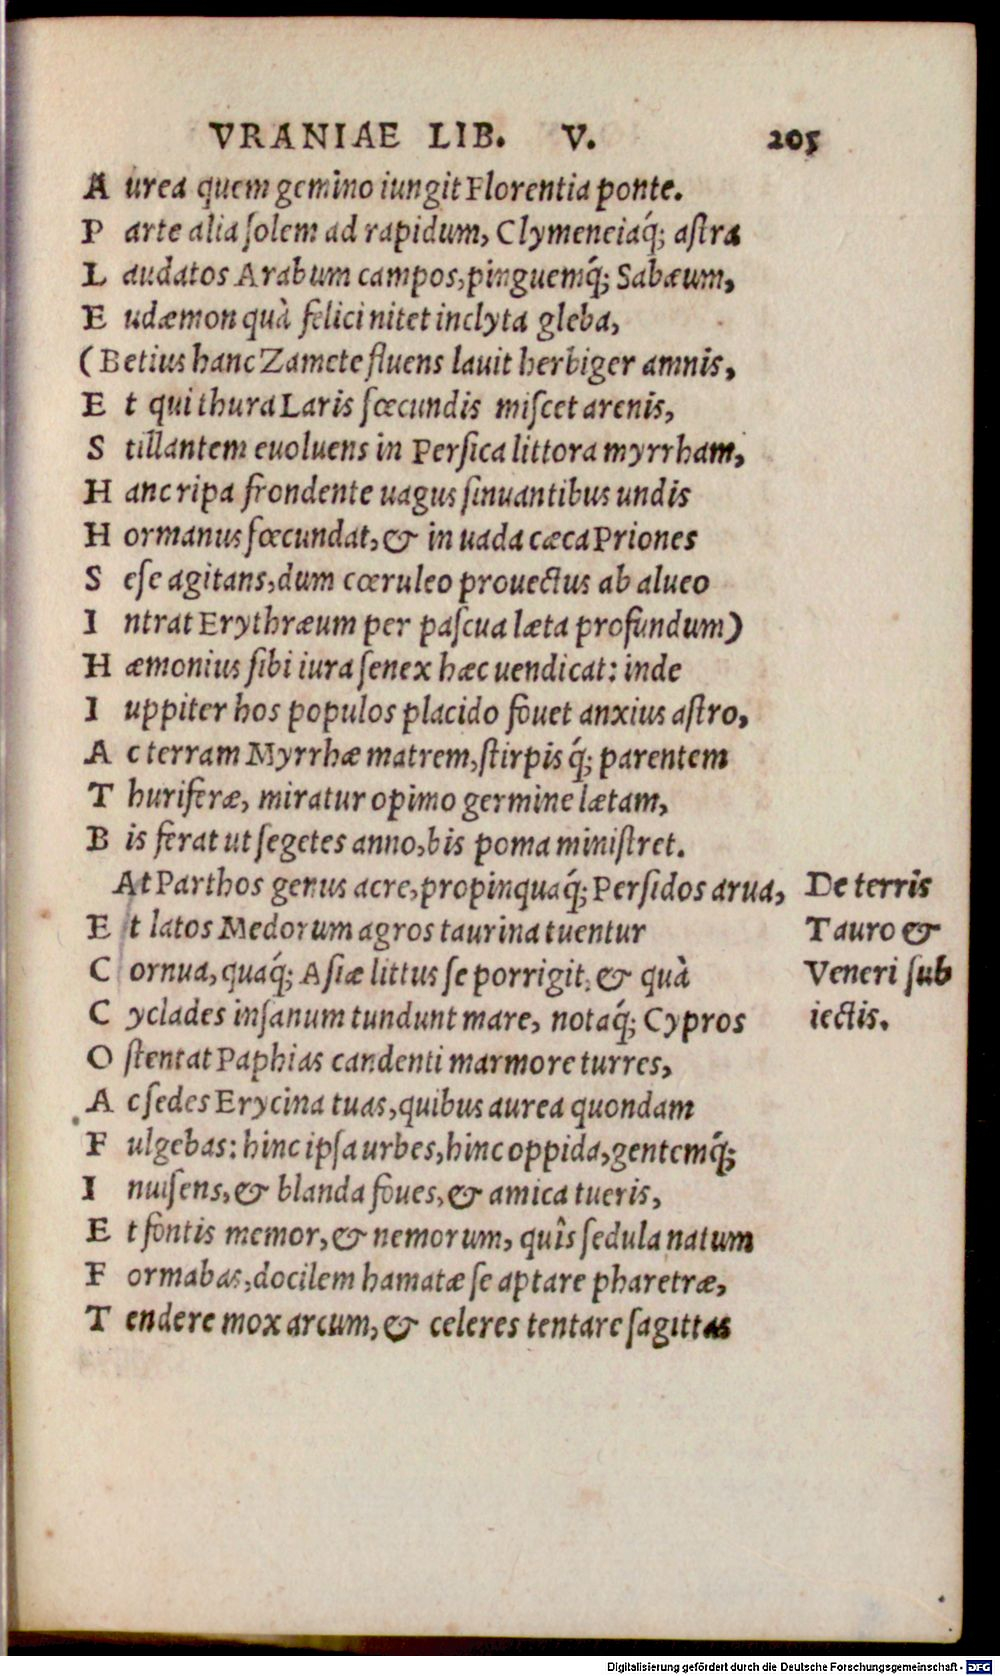 VRANIAE LIB. V. 205
Aurea quem gemino iungit Florentia ponte.
Parte alia ſolem ad rapidum, Clymeneiaq́; aſtra
Laudatos Arabum campos, pinguemq́; Sabæum,
Eudæmon quà felici nitet inclyta gleba,
(Betius hanc Zamete fluens lauit herbiger amnis,
Et qui thura Laris fœcundis miſcet arenis,
Stillantem euoluens in Perſica littora myrrham,
Hanc ripa frondente uagus ſinuantibus undis
Hormanus fœcundat, & in uada cæca Priones
Seſe agitans, dum cœruleo prouectus ab alueo
Intrat Erythræum per paſcua læta profundum)
Hæmonius ſibi iura ſenex hæc uendicat: inde
Iuppiter hos populos placido fouet anxius aſtro,
Ac terram Myrrhæ matrem, ſtirpisq́; parentem
Thuriferæ, miratur opimo germine lætam,
Bis ferat ut ſegetes anno, bis poma miniſtret.
At Parthos genus acre, propinquaq́; Perſidos arua,
Et latos Medorum agros taurina tuentur
Cornua, quaq́; Aſiæ littus ſe porrigit, & quà
Cyclades inſanum tundunt mare, notaq́; Cypros
Oſtentat Paphias candenti marmore turres,
Ac ſedes Erycina tuas, quibus aurea quondam
Fulgebas: hinc ipſa urbes, hinc oppida, gentemq́;
Inuiſens, & blanda foues, & amica tueris,
Et fontis memor, & nemorum, quîs ſedula natum
Formabas, docilem hamatæ ſe aptare pharetræ,
Tendere mox arcum, & celeres tentare ſagittas
De terris
Tauro &
Veneri ſub
iectis.
Digitalisierung gefördert durch die Deutsche Forschungsgemeinschaft - DFG